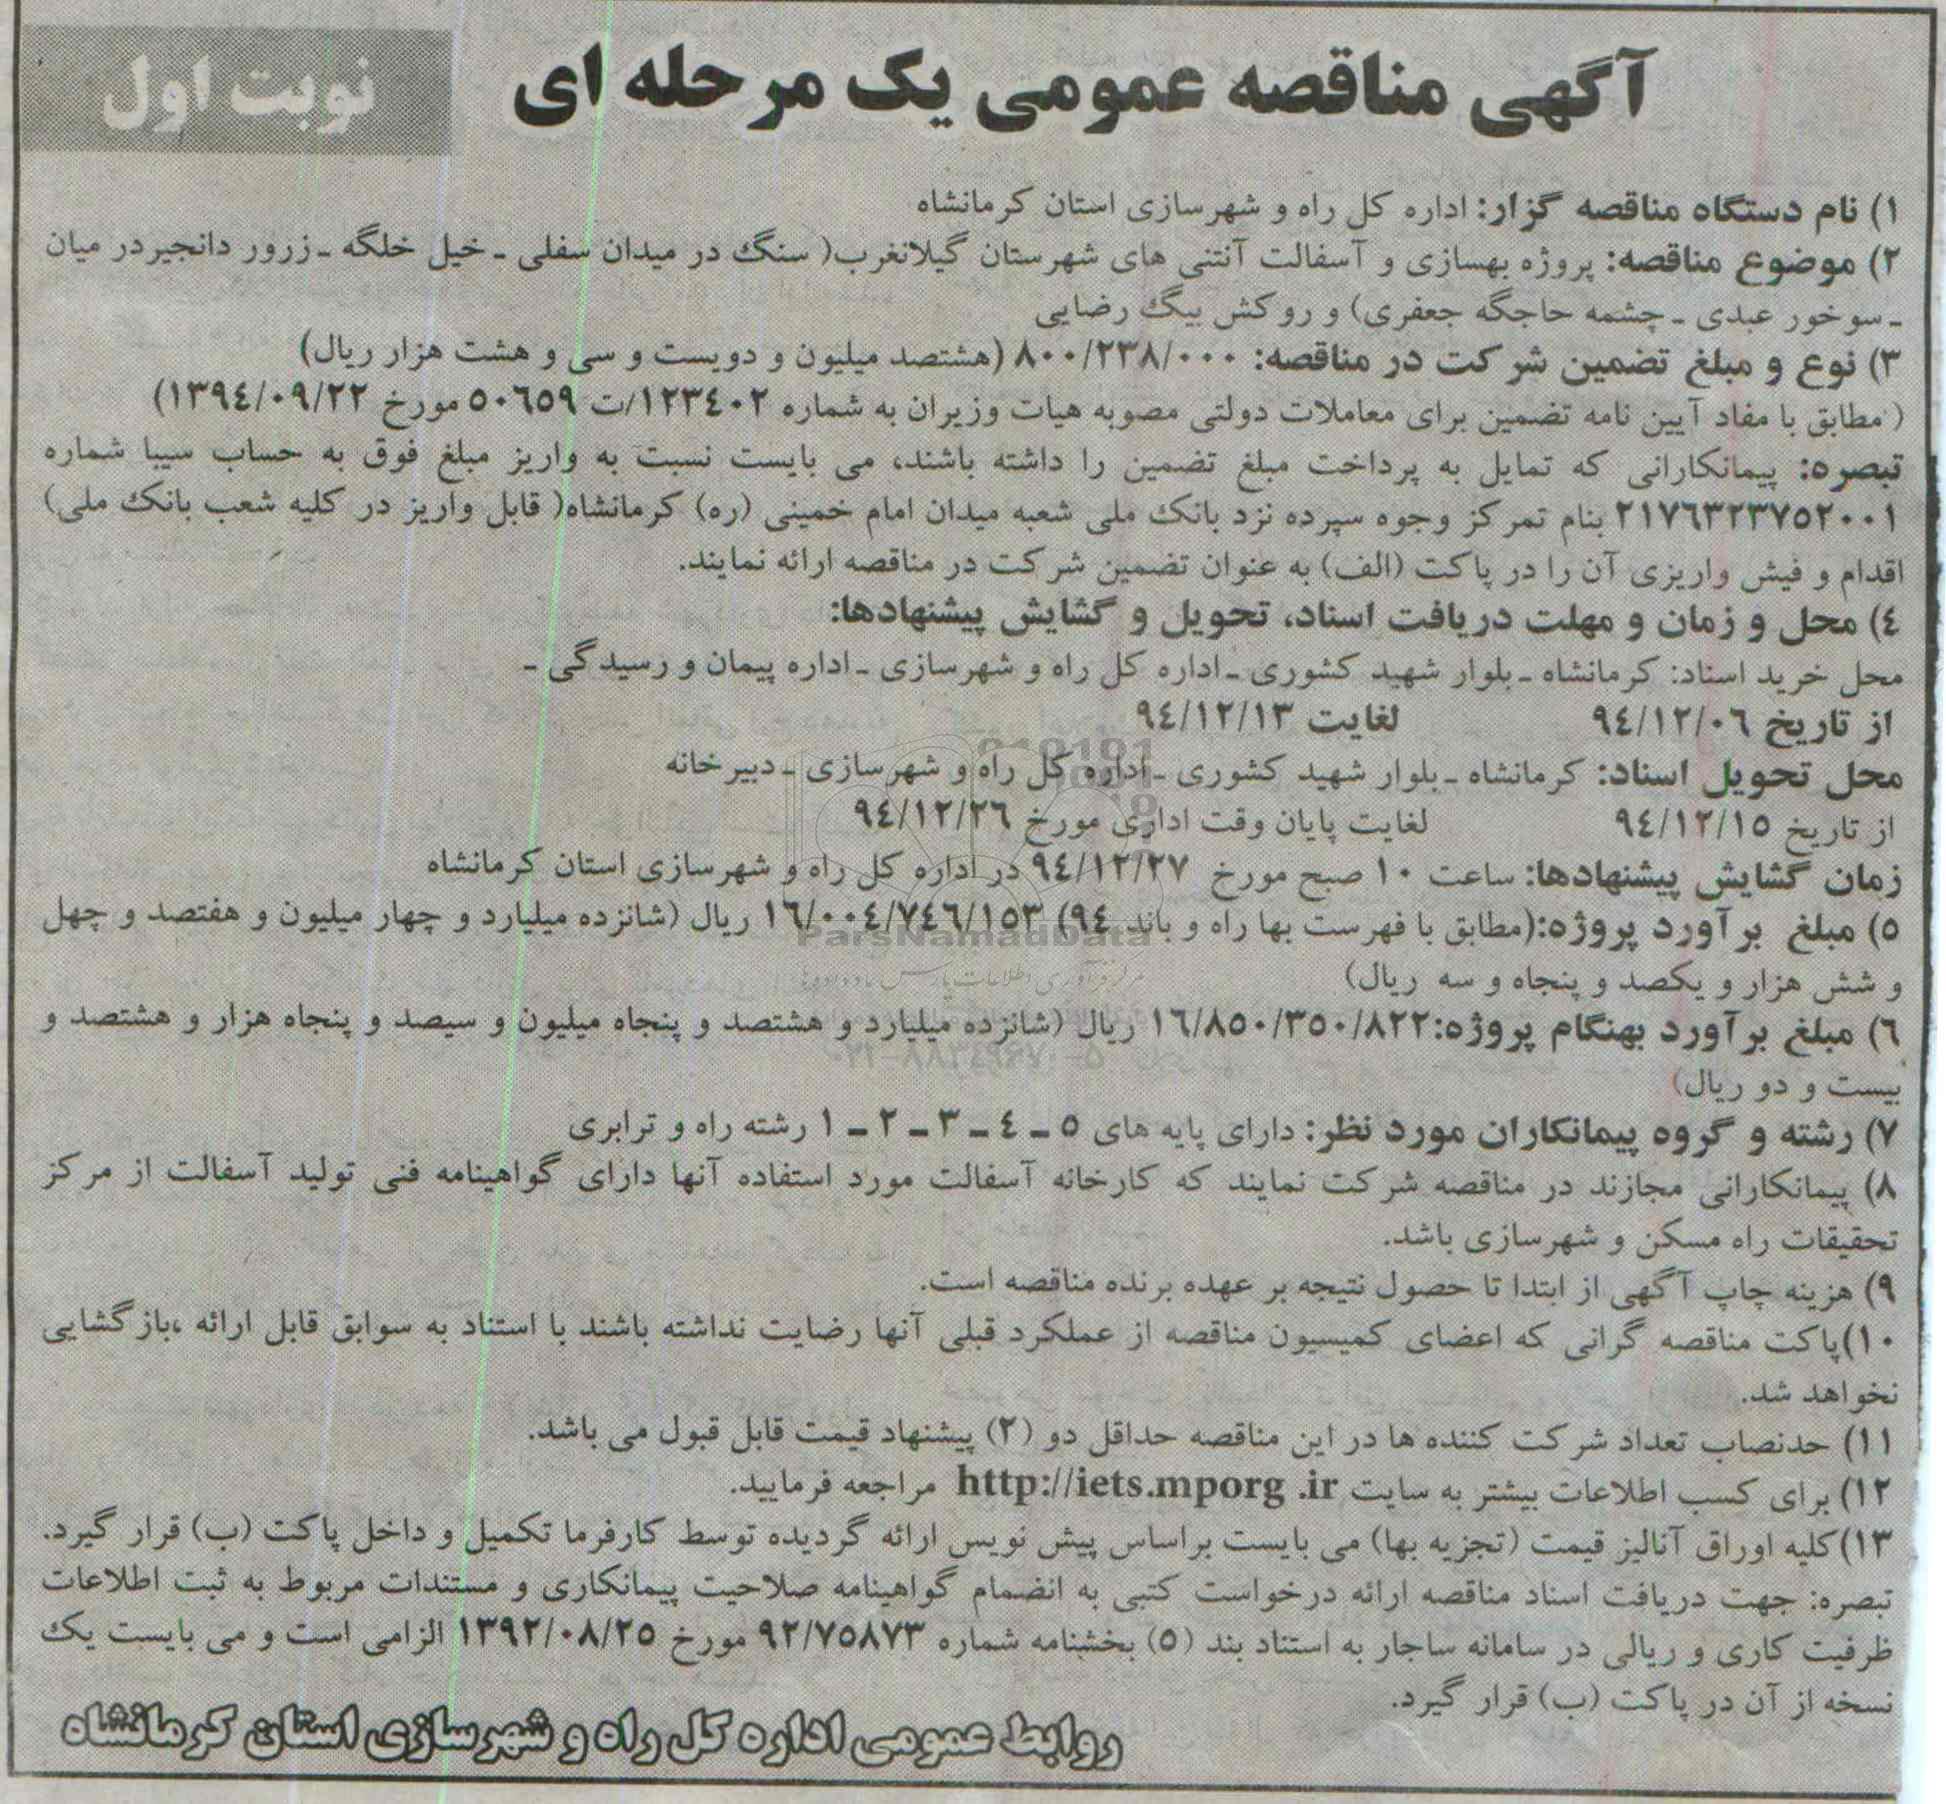 آگهی مناقصه عمومی یک مرحله ای
نوبت اول
۱) نام دستگاه مناقصه گزار: اداره کل راه و شهرسازی استان کرمانشاه
۲) موضوع مناقصه: پروژه بهسازی و آسفالت آنتنی های شهرستان گیلانغرب( سنگ در میدان سفلی ـ خیل خلگه ـ زرور دانجیردر میان
ـ سوخور عبدی ـ چشمه حاجگه جعفری) و روکش بیگ رضایی
۳) نوع و مبلغ تضمین شرکت در مناقصه: ۸۰۰/۲۳۸/۰۰۰ (هشتصد میلیون و دویست و سی و هشت هزار ریال)
( مطابق با مفاد آیین نامه تضمین برای معاملات دولتی مصوبه هیات وزیران به شماره ۱۲۳۴۰۲/ت ۵۰۶۵۹ مورخ ۱۳۹۴/۰۹/۲۲)
تبصره: پیمانکارانی که تمایل به پرداخت مبلغ تضمین را داشته باشند، می بایست نسبت به واریز مبلغ فوق به حساب سیبا شماره
۲۱۷۶۳۲۳۷۵۲۰۰۱ بنام تمرکز وجوه سپرده نزد بانک ملی شعبه میدان امام خمینی (ره) کرمانشاه( قابل واریز در کلیه شعب بانک ملی)
اقدام و فیش واریزی آن را در پاکت (الف) به عنوان تضمین شرکت در مناقصه ارائه نمایند.
۴) محل و زمان و مهلت دریافت اسناد، تحویل و گشایش پیشنهادها:
محل خرید اسناد: کرمانشاه ـ بلوار شهید کشوری ـ اداره کل راه و شهرسازی ـ اداره پیمان و رسیدگی ـ
از تاریخ ۹۴/۱۲/۰۶ لغایت ۹۴/۱۲/۱۳
محل تحویل اسناد: کرمانشاه ـ بلوار شهید کشوری ـ اداره کل راه و شهرسازی ـ دبیرخانه
از تاریخ ۹۴/۱۲/۱۵ لغایت پایان وقت اداری مورخ ۹۴/۱۲/۲۶
زمان گشایش پیشنهادها: ساعت ۱۰ صبح مورخ ۹۴/۱۲/۲۷ در اداره کل راه و شهرسازی استان کرمانشاه
۵) مبلغ برآورد پروژه:(مطابق با فهرست بها راه و باند ۹۴) ۱۶/۰۰۴/۷۴۶/۱۵۳ ریال (شانزده میلیارد و چهار میلیون و هفتصد و چهل
و شش هزار و یکصد و پنجاه و سه ریال)
ParsNamadData
۶) مبلغ برآورد بهنگام پروژه:۱۶/۸۵۰/۳۵۰/۸۲۲ ریال (شانزده میلیارد و هشتصد و پنجاه میلیون و سیصد و پنجاه هزار و هشتصد و
بیست و دو ریال)
۰۲۱-۸۸۳۴۹۶۷۰-۵
۷) رشته و گروه پیمانکاران مورد نظر: دارای پایه های ۵ ـ ۴ ـ ۳ ـ ۲ ـ ۱ رشته راه و ترابری
۸) پیمانکارانی مجازند در مناقصه شرکت نمایند که کارخانه آسفالت مورد استفاده آنها دارای گواهینامه فنی تولید آسفالت از مرکز
تحقیقات راه مسکن و شهرسازی باشد.
۹) هزینه چاپ آگهی از ابتدا تا حصول نتیجه بر عهده برنده مناقصه است.
۱۰)پاکت مناقصه گرانی که اعضای کمیسیون مناقصه از عملکرد قبلی آنها رضایت نداشته باشند با استناد به سوابق قابل ارائه ،بازگشایی
نخواهد شد.
۱۱) حدنصاب تعداد شرکت کننده ها در این مناقصه حداقل دو (۲) پیشنهاد قیمت قابل قبول می باشد.
۱۲) برای کسب اطلاعات بیشتر به سایت http://iets.mporg .ir مراجعه فرمایید.
۱۳)کلیه اوراق آنالیز قیمت (تجزیه بها) می بایست براساس پیش نویس ارائه گردیده توسط کارفرما تکمیل و داخل پاکت (ب) قرار گیرد.
تبصره: جهت دریافت اسناد مناقصه ارائه درخواست کتبی به انضمام گواهینامه صلاحیت پیمانکاری و مستندات مربوط به ثبت اطلاعات
ظرفیت کاری و ریالی در سامانه ساجار به استناد بند (۵) بخشنامه شماره ۹۲/۷۵۸۷۳ مورخ ۱۳۹۲/۰۸/۲۵ الزامی است و می بایست یک
نسخه از آن در پاکت (ب) قرار گیرد.
روابط عمومی اداره کل راه و شهرسازی استان کرمانشاه